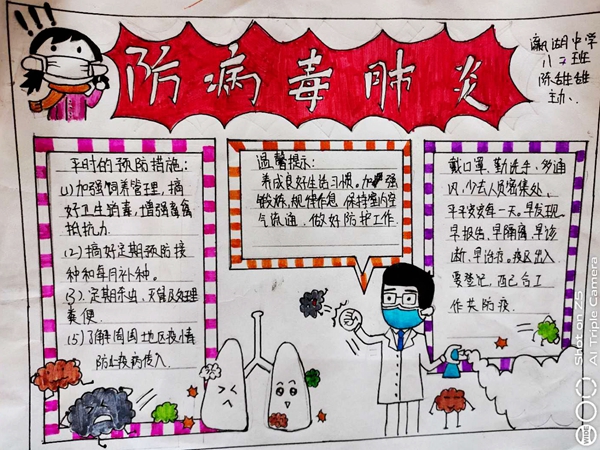 防病毒肺炎
瀛湖中学
八二班
陈雄雄
平时的预防措施:
(1)加强饲养管理,搞
好卫生消毒,增强畜禽
抵抗力.
(2)搞好定期预防接
种和每月补种。
(3)、定期杀虫、灭鼠及处理
粪便.
(5)了解周围地区疫情
防止疫病传入.
温馨提示:
养成良好生活习惯。加强
锻炼,规律作息,保持室内空
气流通,做好防护工作
戴口罩、勤洗手、多通
风,少去人员密集处、
平平安安每一天。早发现
早报告,早隔离,早诊
断,早治疗。
要登记,
作共防疫.
Shot on Z5
AI Triple Camera